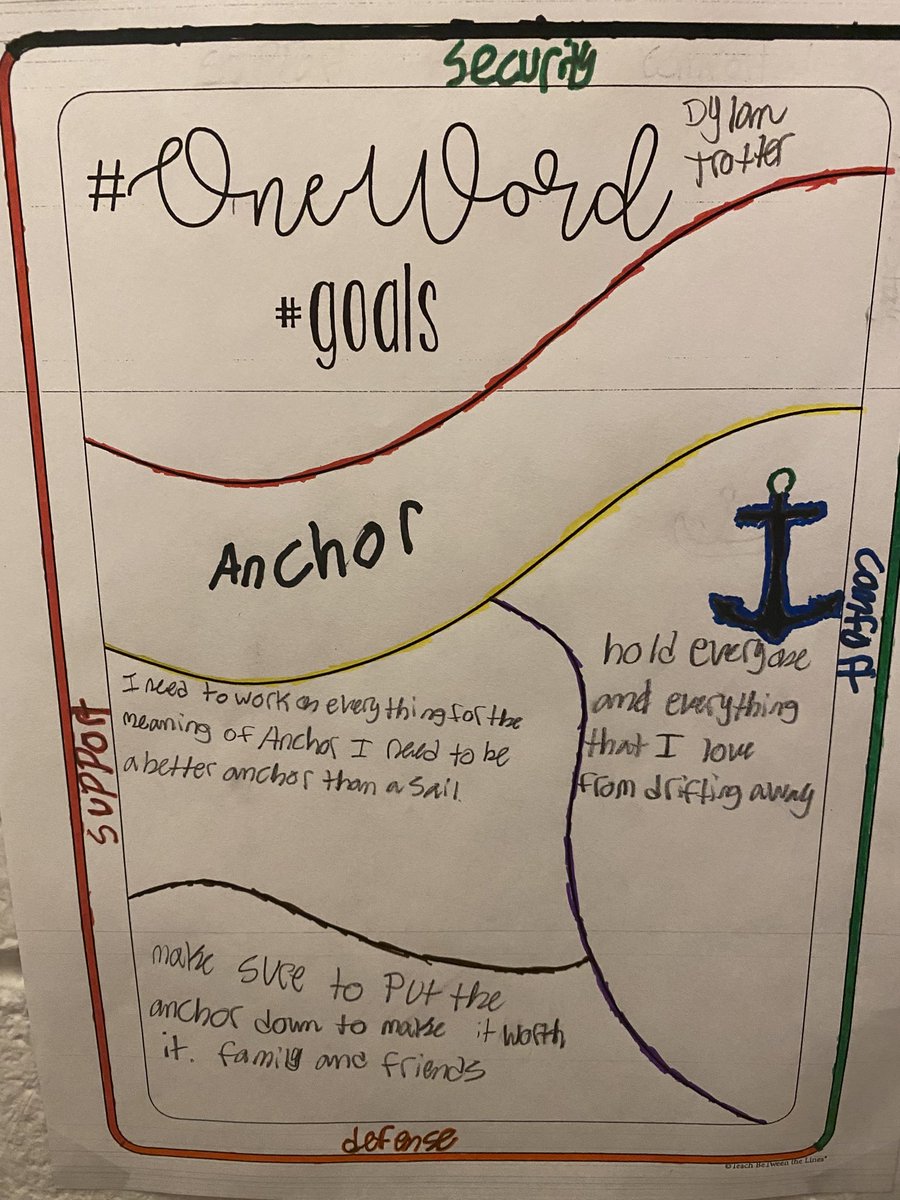 security
#OneWord
Dylan
Trotter
#goals
Anchor
comfort
support
I need to work on everything for the
meaning of Anchor I need to be
a better anchor than a sail.
hold everyone
and everything
that I love
from drifting away
make sure to put the
anchor down to make it worth
it. family and friends
defense
©Teach Between the Lines